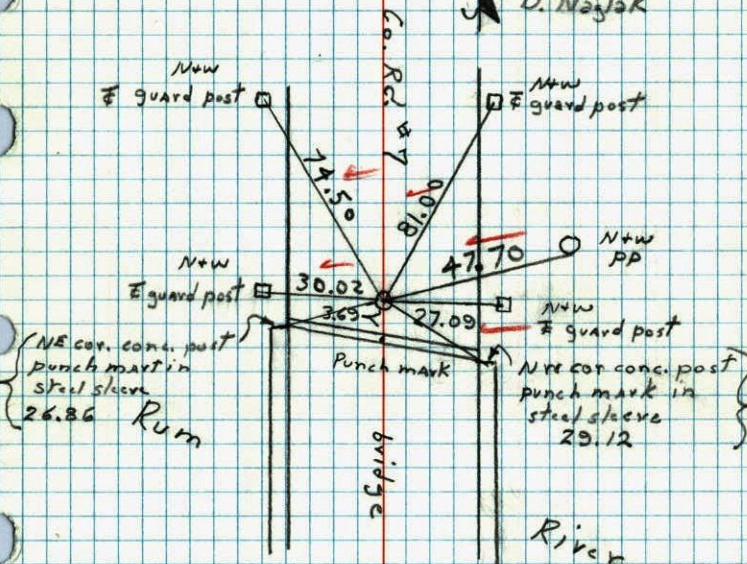 D. Naglak
N+W
℄ guard post
Co. Rd. #7
N+W
℄ guard post
74.50
81.00
N+W
PP
47.70
N+W
℄ guard post
30.02
3.69
27.09
N+W
℄ guard post
Punch mark
NE cor. conc. post
punch mark in
steel sleeve
26.86
NW cor conc. post
punch mark in
steel sleeve
29.12
Rum
bridge
River